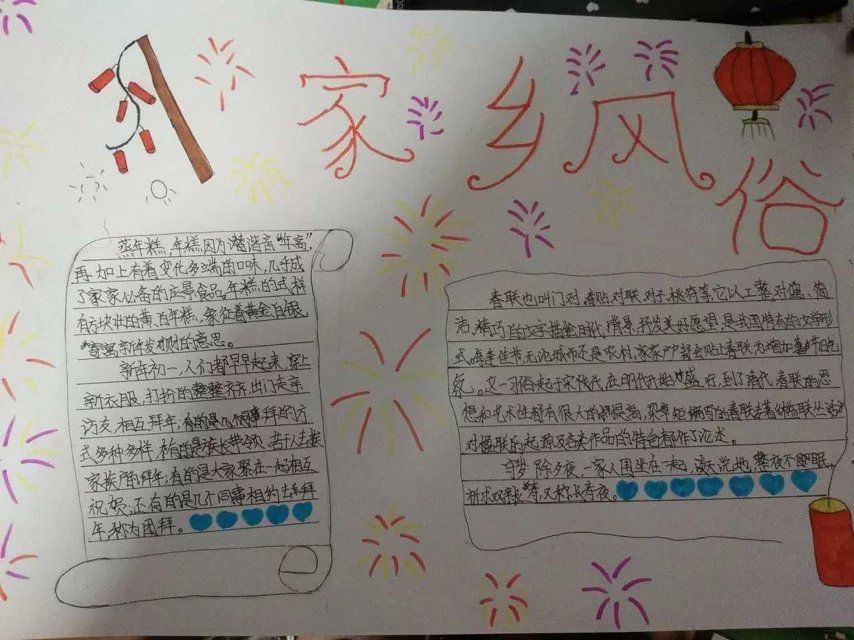 家乡风俗
蒸年糕,年糕因为谐音"年高",
再加上有着变化多端的口味,几乎成
了家家必备的应景食品。年糕的式样
有方块状的黄、白年糕,象征着黄金、白银,
寄寓新年发财的意思。
新年初一,人们都早早起来,穿上
新衣服,打扮的整整齐齐,出门去走亲
访友,相互拜年,有的是
式多种多样,有的是族长带领若干人去挨
家挨户的拜年;有的是大家聚在一起相互
祝贺,还有的是几个同事相约去拜
年,称为团拜。
春联也叫门对、春贴、对联、对子、桃符等,它以工整、对偶、简
洁、精巧的文字描绘时代背景,抒发美好愿望,是我国特有的文学形
式。每逢佳节,无论城市还是农村,家家户户都会贴上春联,为增加喜节日气
氛。这一习俗起于宋代,在明代开始盛行,到了清代,春联的思
想和艺术性都有很大的提高,梁章钜编写的春联专著《楹联丛话》
对楹联的起源及各类作品的特色都作了论述。
守岁,除夕夜,一家人围坐在一起,谈天说地,整夜不眠,
又称长寿夜。